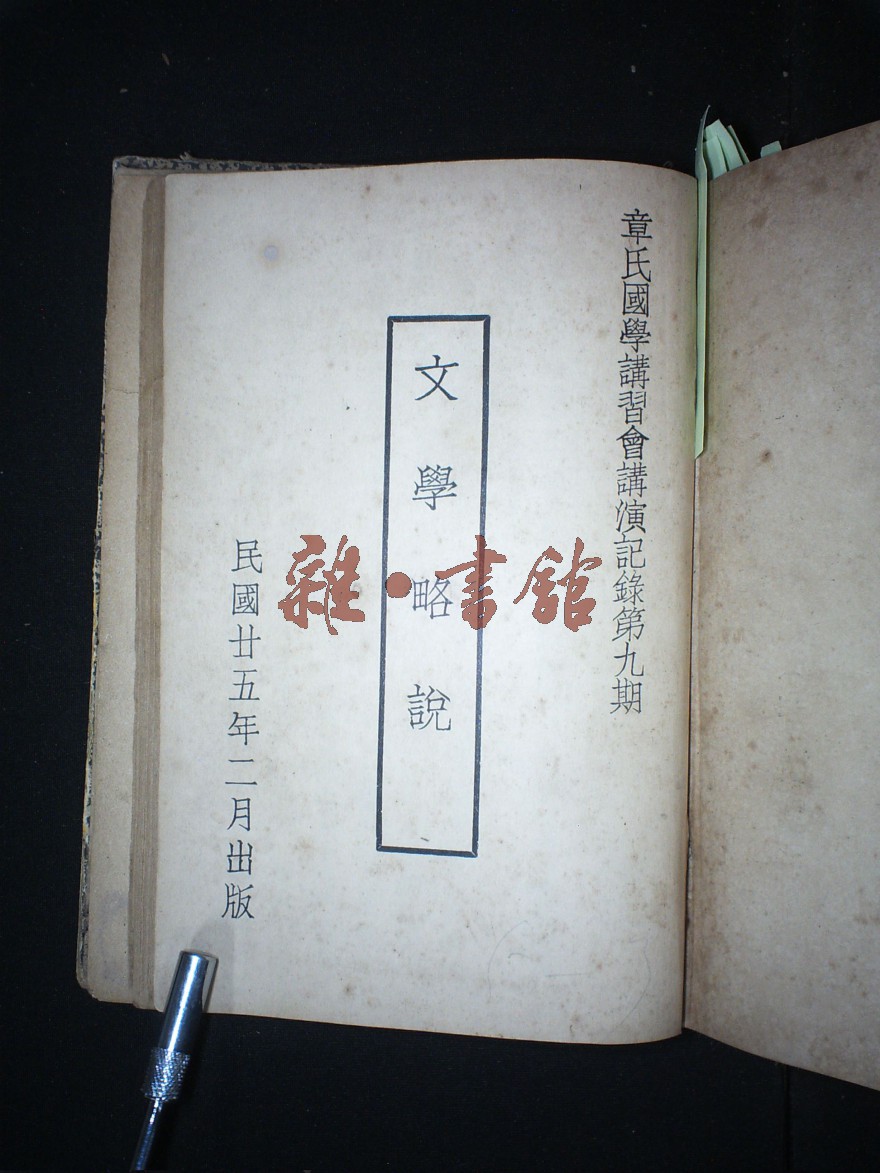 章氏國學講習會講演記錄第九期
文學略說
民國廿五年二月出版
雜·書館